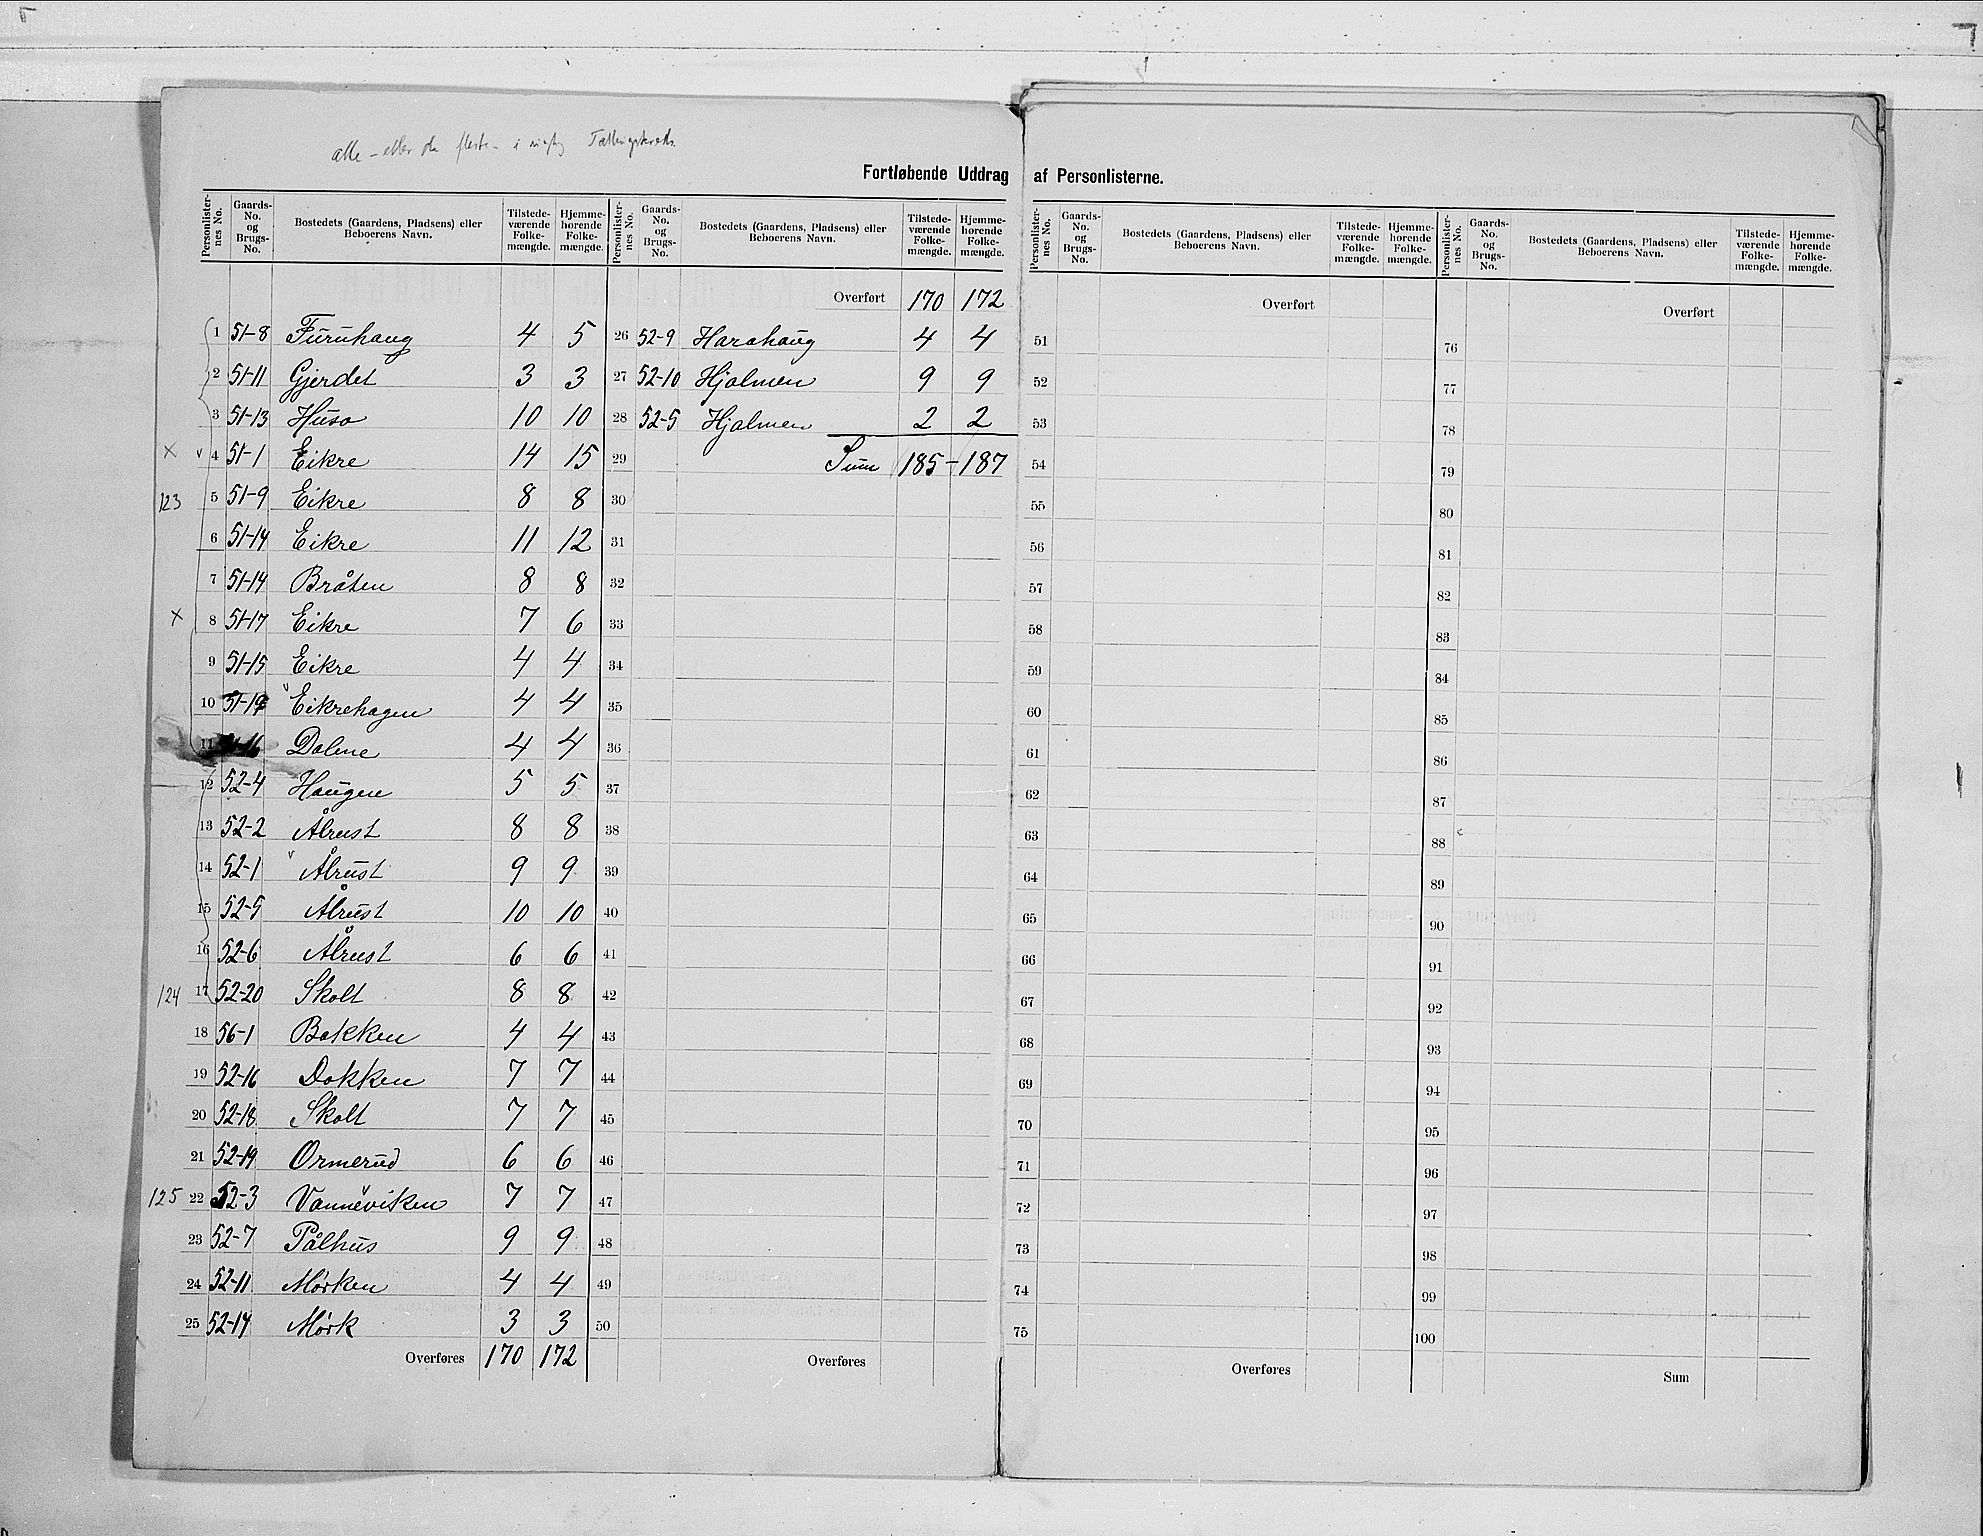 alle - eller de fleste - i  Tællingskreds
Fortløbende Uddrag af Personlisterne.
Personlister-nes No. Gaards-No. og Brugs-No. Bostedets (Gaardens, Pladsens) eller Beboerens Navn. Tilstede-værende Folke-mængde. Hjemme-hørende Folke-mængde. Personlister-nes No. Gaards-No. og Brugs-No. Bostedets (Gaardens, Pladsens) eller Beboerens Navn. Tilstede-værende Folke-mængde. Hjemme-hørende Folke-mængde. Personlister-nes No. Gaards-No. og Brugs-No. Bostedets (Gaardens, Pladsens) eller Beboerens Navn. Tilstede-værende Folke-mængde. Hjemme-hørende Folke-mængde. Personlister-nes No. Gaards-No. og Brugs-No. Bostedets (Gaardens, Pladsens) eller Beboerens Navn. Tilstede-værende Folke-mængde. Hjemme-hørende Folke-mængde.
Overført 170 172 Overført Overført
1 51-8 Furuhaug 4 5 26 52-9 Harahaug 4 4 51 76
2 51-11 Gjerdet 3 3 27 52-10 Hjalmen 9 9 52 77
3 51-13 Huso 10 10 28 52-5 Hjalmen 2 2 53 78
x v 4 51-1 Eikre 14 15 29 Sum 185 - 187 54 79
123 5 51-9 Eikre 8 8 30 55 80
6 51-14 Eikre 11 12 31 56 81
7 51-14 Bråten 8 8 32 57 82
x 8 51-17 Eikre 7 6 33 58 83
9 51-15 Eikre 4 4 34 59 84
10 51-19 v Eikrehagen 4 4 35 60 85
11 51-16 Dalene 4 4 36 61 86
12 52-4 Haugen 5 5 37 62 87
13 52-2 Ålrust 8 8 38 63 88
14 52-1 v Ålrust 9 9 39 64 89
15 52-5 Ålrust 10 10 40 65 90
16 52-6 Ålrust 6 6 41 66 91
124 17 52-20 Skolt 8 8 42 67 92
18 56-1 Bakken 4 4 43 68 93
19 52-16 Dokken 7 7 44 69 94
20 52-18 Skolt 7 7 45 70 95
21 52-19 Ormerud 6 6 46 71 96
125 22 52-3 Vanneviken 7 7 47 72 97
23 52-7 Pålhus 9 9 48 73 98
24 52-11 Mørken 4 4 49 74 99
25 52-14 Mørk 3 3 50 75 100
Overføres 170 172 Overføres Overføres Sum